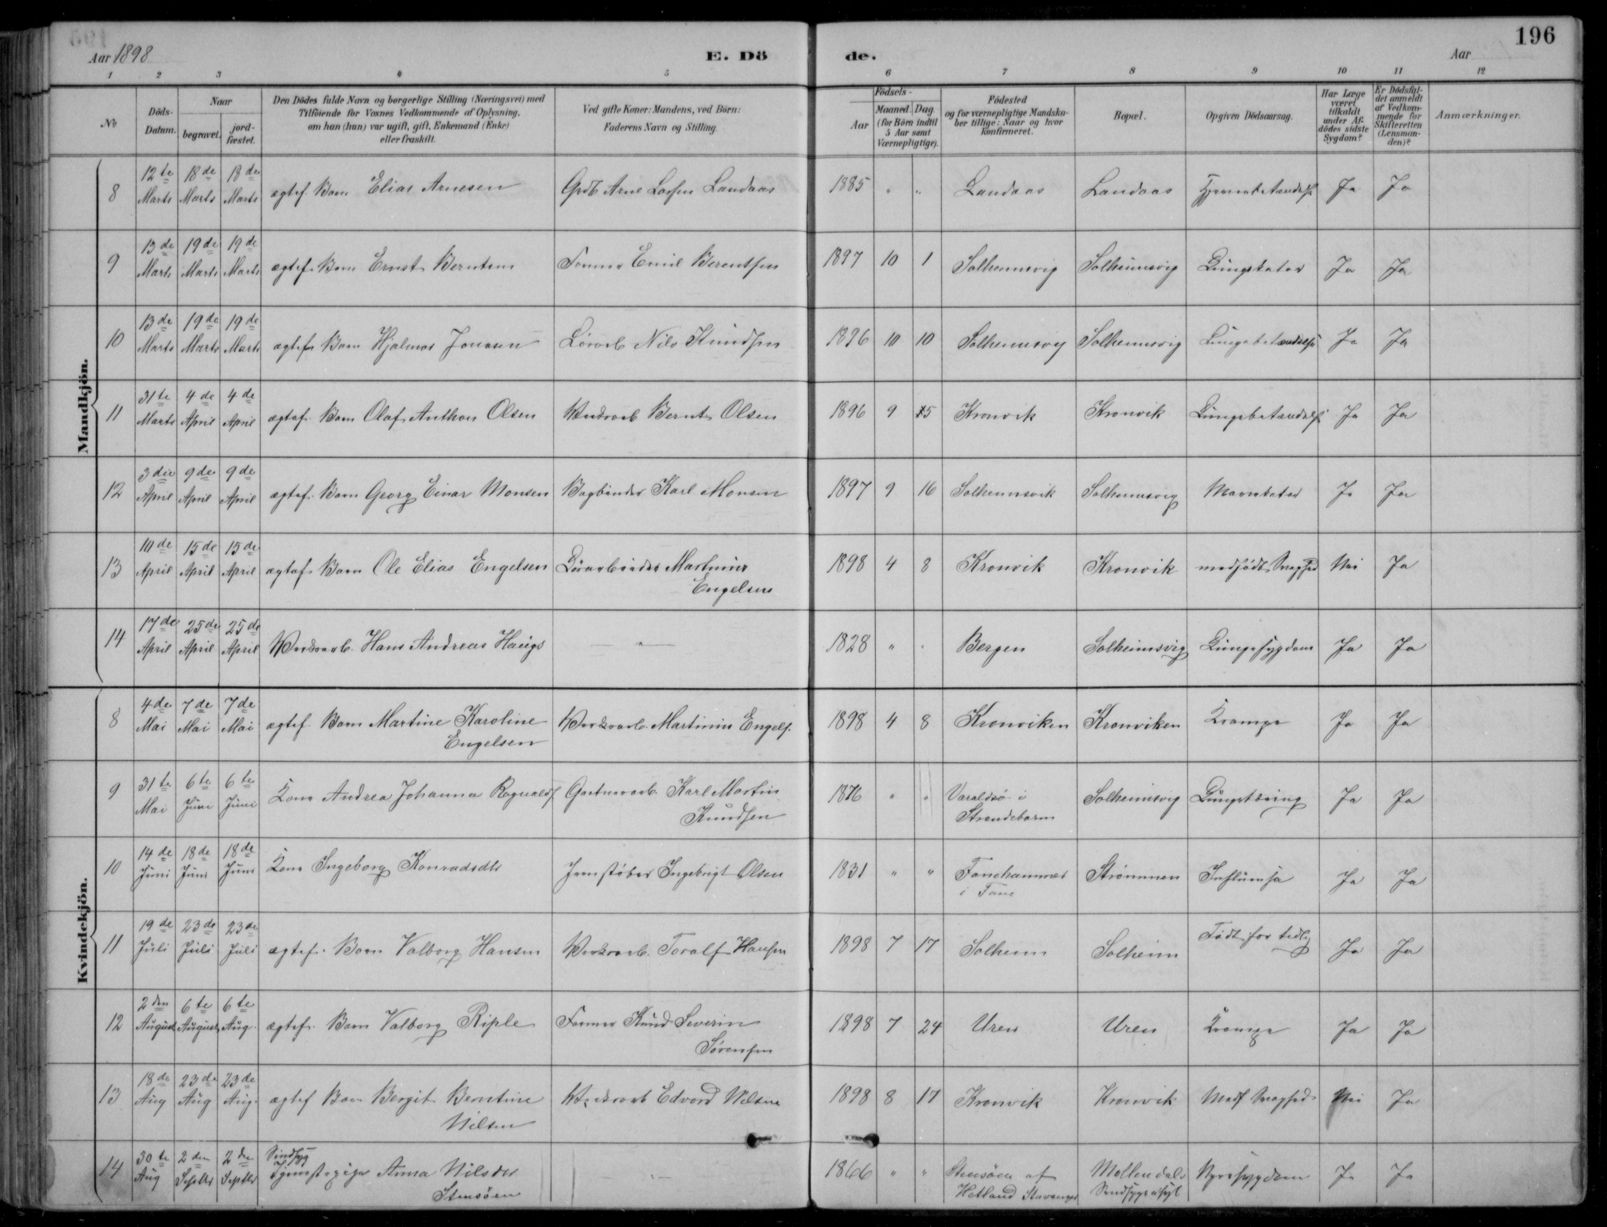 Aar 1898
E. Dö
de.
Aar
196
1 2 3 3 4 5 6 7 8 9 10 11 12
No
Döds-Datum.
Naar
begravet.
jord-fæstet.
Den Dödes fulde Navn og borgerlige Stilling (Næringsvei) med
Tilföiende for Voxnes Vedkommende af Oplysning,
om han (hun) var ugift, gift, Enkemand (Enke)
eller fraskilt.
Ved gifte Koner: Mandens, ved Börn:
Faderens Navn og Stilling.
Aar
Födsels-
Maaned. Dag
(for Börn indtil
5 Aar samt
Værnepligtige).
Födested
og for værnepligtige Mandska-
ber tillige: Naar og hvor
konfirmeret.
Bopæl.
Opgiven Dödsaarsag.
Har Læge
været
tilkaldt
under Af-
dödes sidste
Sygdom?
Er Dödsfal-
det anmeldt
af Vedkom-
mende for
Skifteretten
(Lensman-
den)?
Anmærkninger.
Mandkjön.
8 12te Marts 18de Marts 18de Marts ægtef. Barn Elias Arnesen Grdb. Arne Landaas 1885 " " Landaas Landaas Ja Ja
9 13de Marts 19de Marts 19de Marts ægtef. Barn Ernst Berntsen Former Emil Berentsen 1897 10 1 Solheimsvig Solheimsvig Lungekatar Ja Ja
10 13de Marts 19de Marts 19de Marts ægtef. Barn Hjalmar Jonasen Nils Knudsen 1896 10 10 Solheimsvig Solheimsvig Lungebetændelse Ja Ja
11 31te Marts 4de April 4de April ægtef. Barn Olaf Anthon Olsen Verksarb. Bernt Olsen 1896 9 15 Kronvik Kronvik Lungebetændelse Ja Ja
12 3die April 9de April 9de April ægtef. Barn Georg Einar Monsen Bogbinder Karl Monsen 1897 9 16 Solheimsvik Solheimsvig Mavekatar Ja Ja
13 14de April 15de April 15de April ægtef. Barn Ole Elias Engelsen Martinius
Engelsen 1898 4 8 Kronvik Kronvik medfödt Svaghed Nei Ja
14 17de April 25de April 25de April Verksarb. Hans Andreas Haugs " 1828 " " Bergen Solheimsvig Lungesygdom Ja Ja
Kvindekjön.
8 4de Mai 7de Mai 7de Mai ægtef. Barn Martine Karoline
Engelsen Verksarb. Martinius Engels. 1898 4 8 Kronviken Kronviken Krampe Ja Ja
9 31te Mai 6te Juni 6te Juni Kone Andrea Johanna Gartnerarb. Karl Martin
Knudsen " " Varaldsö i
Strandebarm Solheimsvig Lungetæring Ja Ja
10 14de Juni 18de Juni 18de Juni Kone Ingeborg Konradsdtr Jernstöber Ingebrigt Olsen 1831 " " Fanehammer
i Fane Strömmen Influensa Ja Ja
11 19de Juli 23de Juli 23de Juli ægtef. Barn Valborg Hansen Verksarb. Toralf Hansen 1898 7 17 Solheim Solheim Födt for tidlig Ja Ja
12 2den August 6te August 6te Aug. ægtef. Barn Valborg Riple Former Knud Severin
Sörensen 1898 7 24 Uren Uren Krampe Ja Ja
13 18de Aug 23de Aug 23de Aug. ægtef Barn Bergit Berntine
Nilsen Edvard Nilsen 1898 8 17 Kronvik Kronvik Medf Svaghed Nei Ja
14 30te Aug 2den Septbr 2den Septbr Sindssyg
Anna Nilsdtr
Stensöen " 1866 " " Stensöen af
Hetland Stavanger Möllendals
Sindssygeasyl Nyresygdom Ja Ja